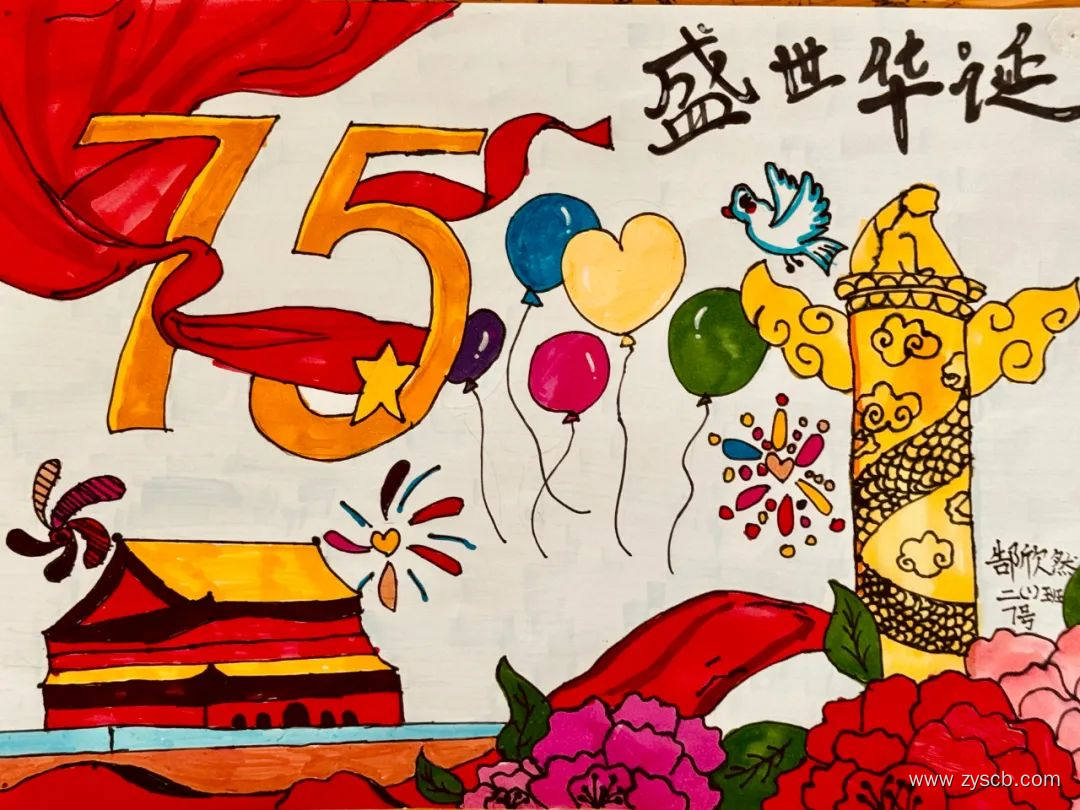 盛世华诞
75
郜欣然
二(1)班
7号
www.zyscb.com